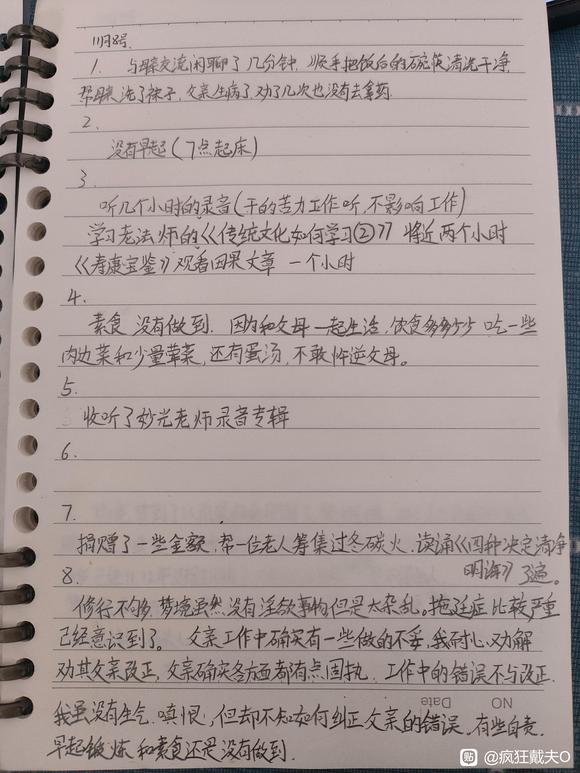 11月8号.
1. 与母亲交流闲聊了几分钟, 顺手把饭后的碗筷清洗干净,
帮母亲洗了袜子, 父亲生病了, 劝了几次也没有去拿药.
2.
没有早起(7点起床)
3.
听几个小时的录音(干的苦力工作听, 不影响工作)
学习老法师的《传统文化如何学习②》将近两个小时
《寿康宝鉴》观看因果文章 一个小时
4.
素食 没有做到. 因为和父母一起生活, 饮食多多少少 吃一些
肉边菜和少量荤菜, 还有蛋汤, 不敢忤逆父母。
5.
收听了妙光老师录音专辑
6.
7.
捐赠了一些金额, 帮一位老人筹集过冬碳火, 读诵《四种决定清净
明诲》了遍。
8.
修行不够, 梦境虽然没有淫欲事物但是太杂乱。拖延症比较严重
已经意识到了。 父亲工作中确实有一些做的不妥, 我耐心劝解
劝其父亲改正, 父亲确实各方面都有点固执. 工作中的错误不与改正.
我虽没有生气. 嗔恨, 但却不知如何纠正父亲的错误, 有些自责.
早起锻炼 和素食还是没有做到.
NO
Date
贴 @疯狂戴夫O